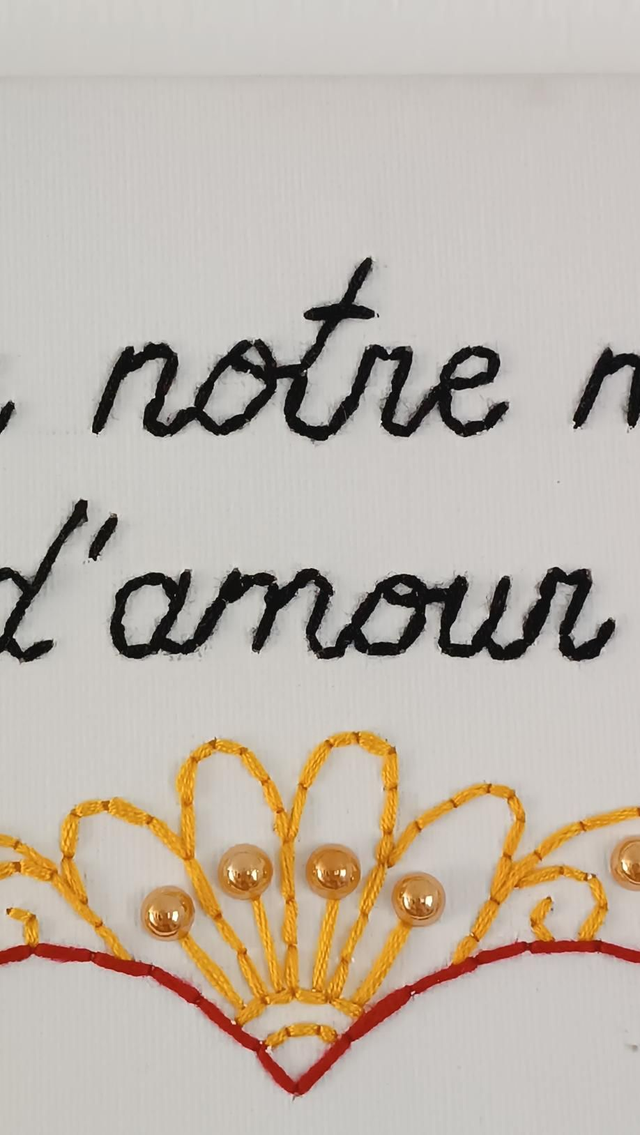 notre
d'amour